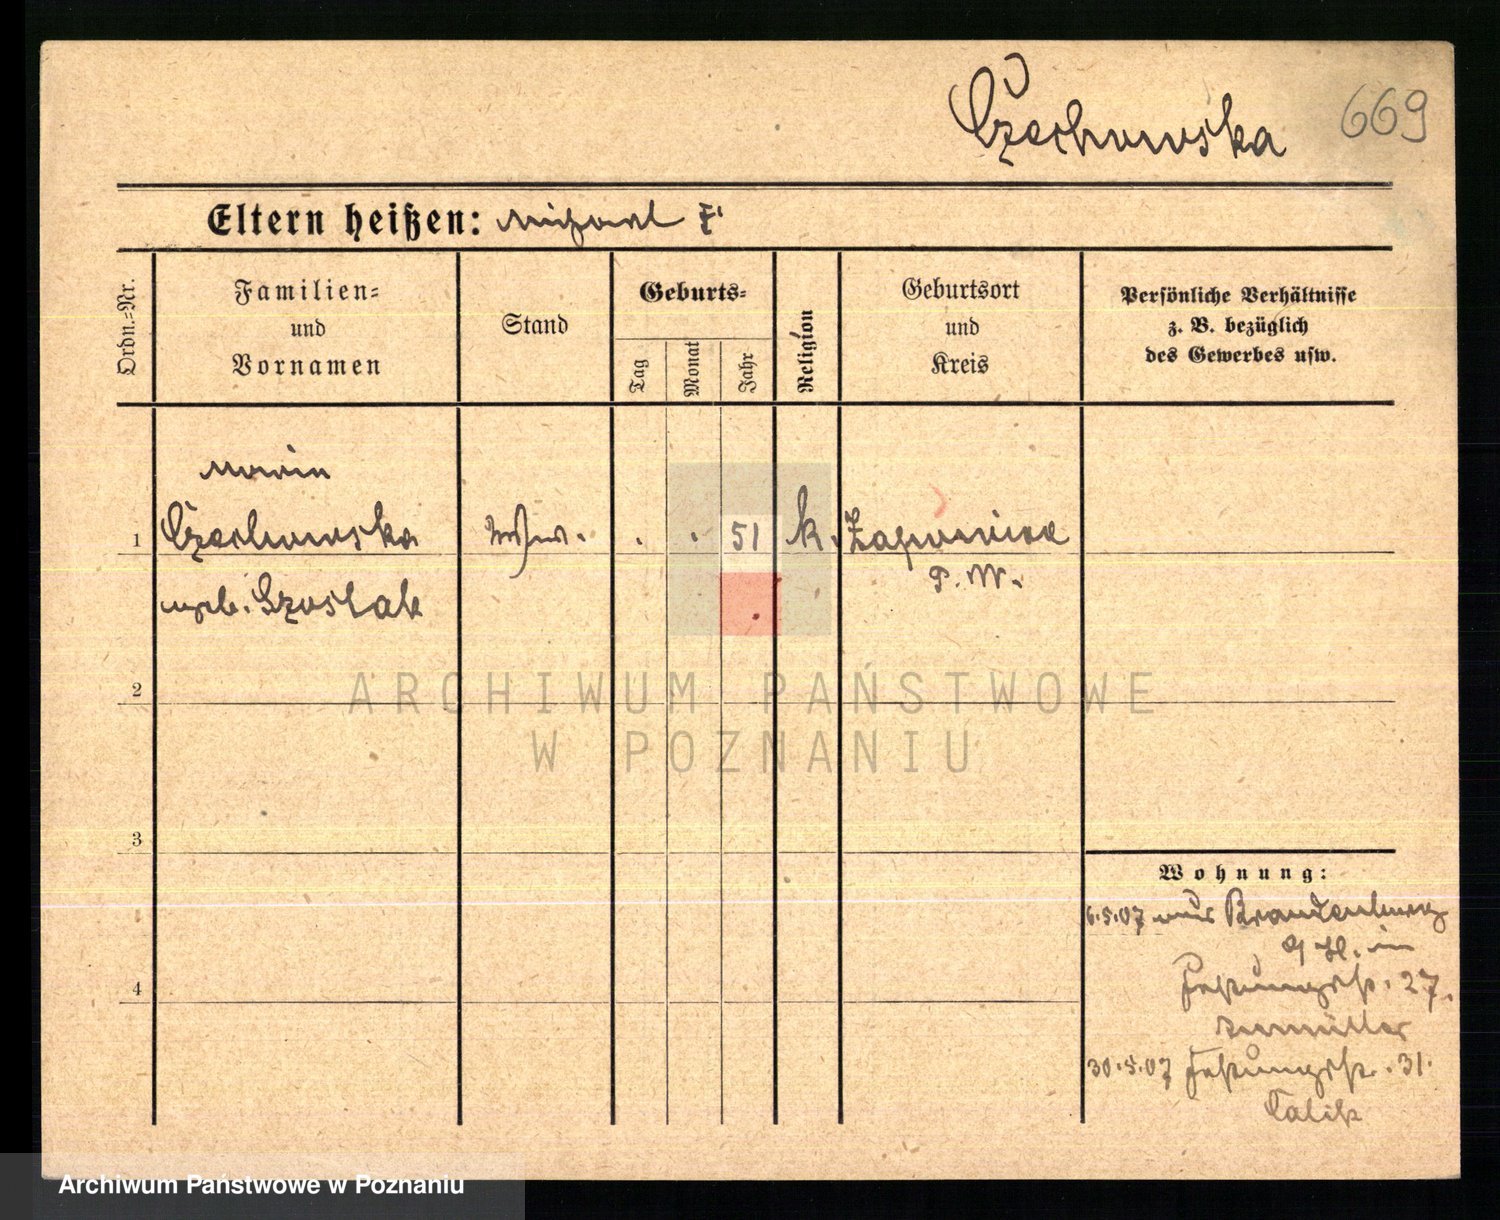 Czechowska 669
Eltern heißen: Michael F.
Ordn.=Nr.
Familien=
und
Vornamen
Stand
Geburts=
Tag
Monat
Jahr
Religion
Geburtsort
und
Kreis
Persönliche Verhältnisse
z. B. bezüglich
des Gewerbes usw.
Maria
1 Czechowska . . 51 k.
geb. Szostak
P. W.
2
ARCHIWUM PAŃSTWOWE
W POZNANIU
3
4
Wohnung:
6.5.07 aus Brandenburg
a/H. in
Festungsstr. 27.
30.5.07 Festungsstr. 31.
Archiwum Państwowe w Poznaniu